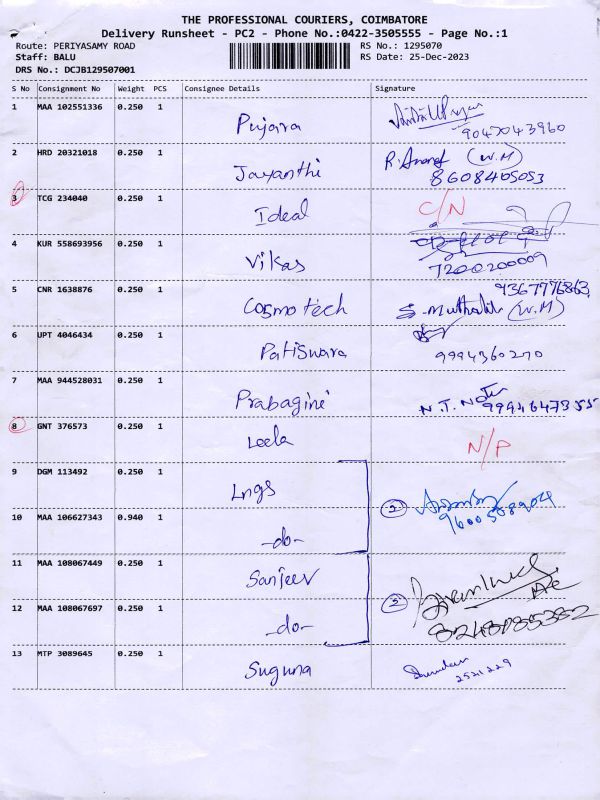 THE PROFESSIONAL COURIERS, COIMBATORE
Delivery Runsheet - PC2 - Phone No.:0422-3505555 - Page No.:1
Route: PERIYASAMY ROAD RS No.: 1295070
Staff: BALU RS Date: 25-Dec-2023
DRS No.: DCJB129507001
S No Consignment No Weight PCS Consignee Details Signature
1 MAA 102551336 0.250 1 Pujara
9047043960
2 HRD 20321018 0.250 1 Jayanthi R. Anand (W.H)
8608405053
3 TCG 234040 0.250 1 Ideal C/N
4 KUR 558693956 0.250 1 Vikas
7200200009
5 CNR 1638876 0.250 1 Cosmo tech 9367776863
(W.H)
6 UPT 4046434 0.250 1 Patiswara
9994360270
7 MAA 944528031 0.250 1 Prabagini
N.T. 9994647355
8 GNT 376573 0.250 1 Leela N/P
9 DGM 113492 0.250 1 Lngs
2
10 MAA 106627343 0.940 1 -do-
11 MAA 108067449 0.250 1 Sanjeev
2
12 MAA 108067697 0.250 1 -do-
13 MTP 3089645 0.250 1 Suguna
2521229